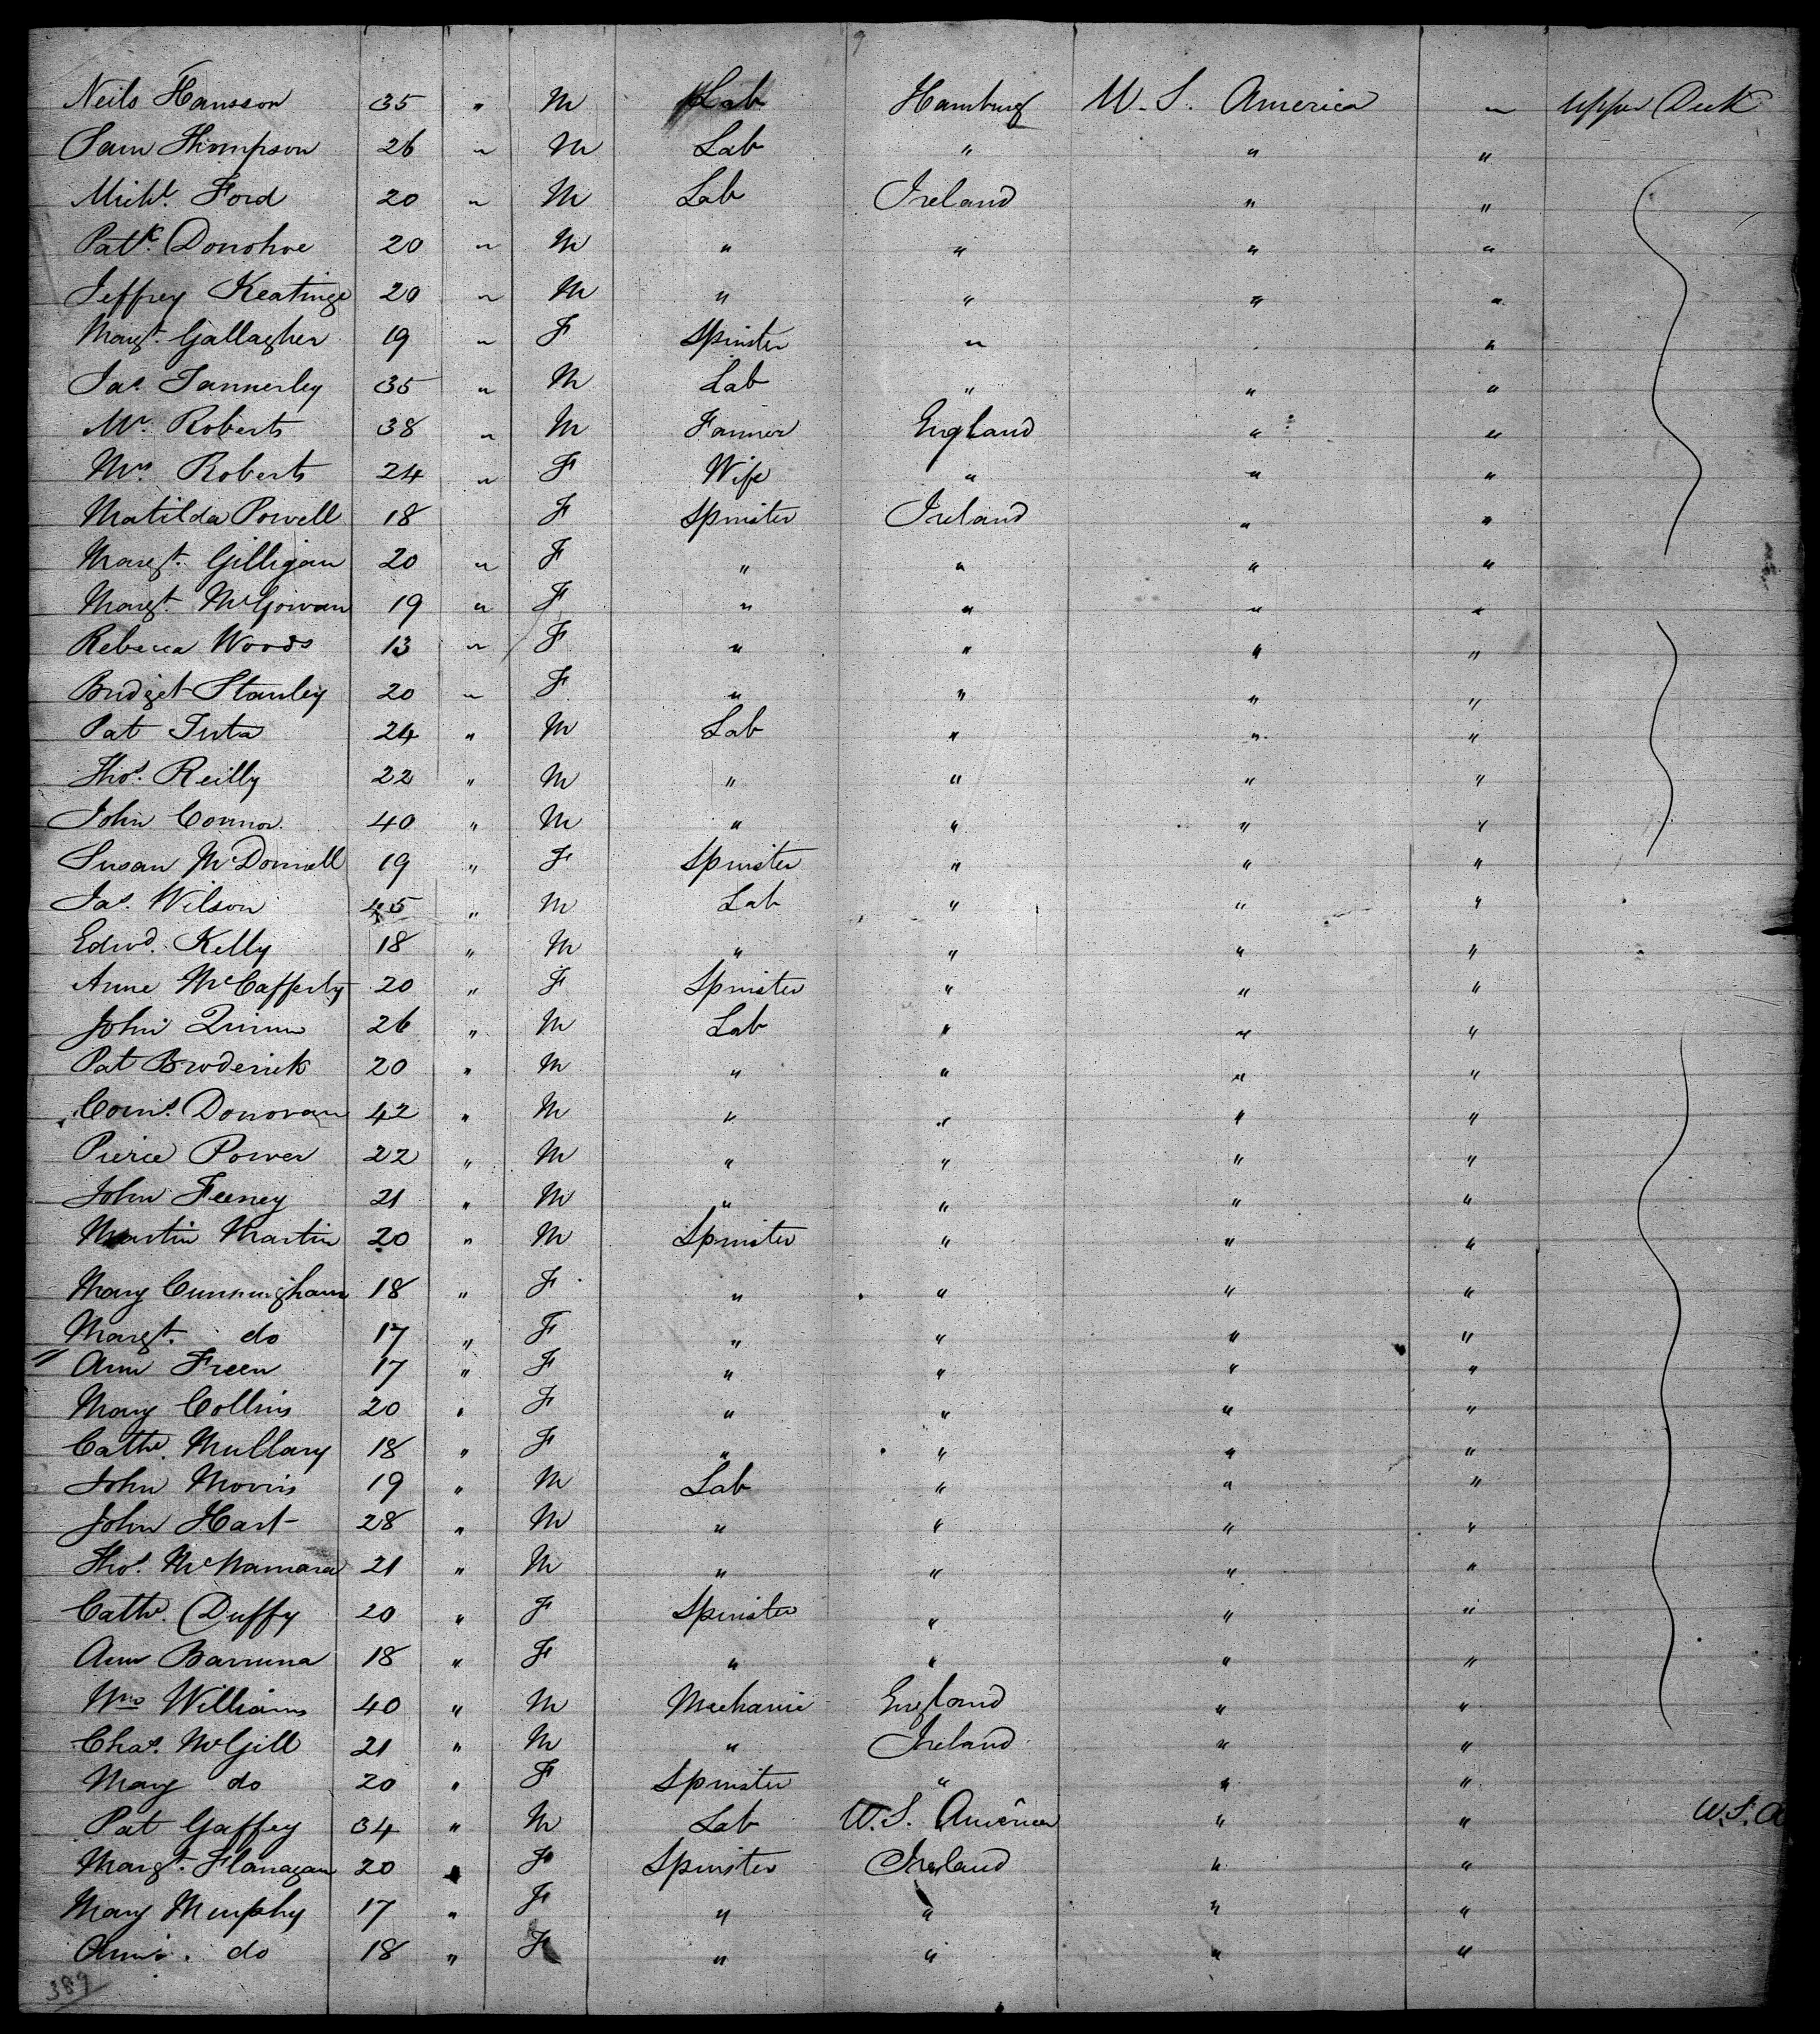 9
Neils Hansson 35 " M Lab Hamburg U.S. America " Upper Deck
Sam Thompson 26 " M Lab " " "
Michl. Ford 20 " M Lab Ireland " "
Patk. Donohoe 20 " M " " " "
Jeffrey Keatinge 20 " M " " " "
Margt. Gallagher 19 " F Spinster " " "
Jas. Tannerley 35 " M Lab " " "
Mr. Roberts 38 " M Farmer England " "
Mrs Roberts 24 " F Wife " " "
Matilda Powell 18 F Spinster Ireland " "
Margt. Gilligan 20 " F " " " "
Margt. McGowan 19 " F " " " "
Rebecca Woods 13 " F " " " "
Bridget Stanley 20 " F " " " "
Pat Tuta 24 " M Lab " " "
Thos. Reilly 22 " M " " " "
John Connor 40 " M " " " "
Susan McDonnell 19 " F Spinster " " "
Jas. Wilson 45 " M Lab " " "
Edwd. Kelly 18 " M " " " "
Anne McCafferty 20 " F Spinster " " "
John Quinn 26 " M Lab " " "
Pat Broderick 20 " M " " " "
Corns. Donovan 42 " M " " " "
Pierce Power 22 " M " " " "
John Feeney 21 " M " " " "
Martin Martin 20 " M Spinster " " "
Mary Cunningham 18 " F " " " "
Margt. do 17 " F " " " "
" Ann Freen 17 " F " " " "
Mary Collins 20 " F " " " "
Cathe. Mullary 18 " F " " " "
John Morris 19 " M Lab " " "
John Hart 28 " M " " " "
Thos. McNamara 21 " M " " " "
Cathe. Duffy 20 " F Spinster " " "
Ann 18 " F " " " "
Wm Williams 40 " M Mechanic England " "
Chas. McGill 21 " M " Ireland " "
Mary do 20 " F Spinster " " "
Pat Gaffey 34 " M Lab U.S. America " " U.S. A
Margt. Flanagan 20 " F Spinster Ireland " "
Mary Murphy 17 " F " " " "
Ann. do 18 " F " " " "
389